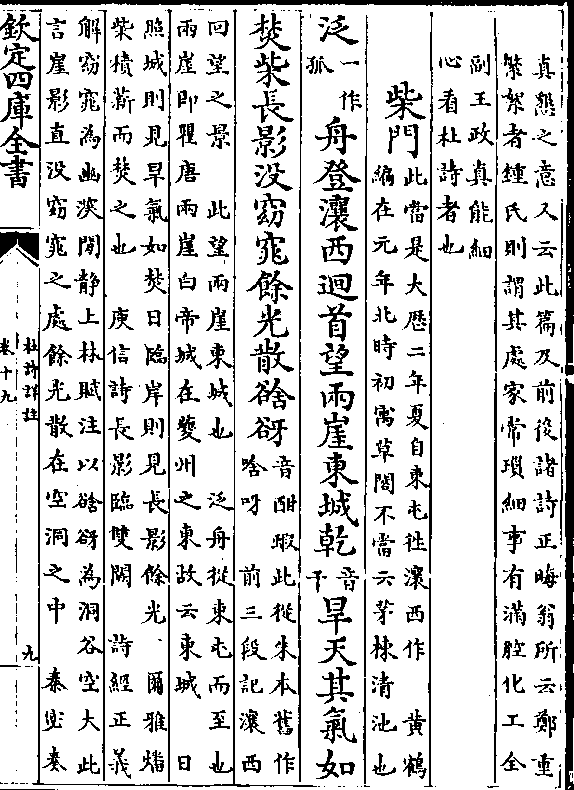 真懇之意又云此篇及前後諸詩正晦翁所云鄭重
繁絮者鍾氏則謂其處家常瑣細事有滿腔化工全
副王政真能細
心看杜詩者也
柴門
此當是大歷二年夏自東屯往瀼西作　黃鶴
編在元年北時初寓草閣不當云茅棟清池也
泛
一作
孤
舟登瀼西迴首望兩崖東城乾
音
干
旱天其氣如
焚柴長影没窈窕餘光散谽谺
音酣㰺此從朱本舊作
唅呀　前三段記瀼西
回望之景　此望兩崖東城也　泛舟從東屯而至也
兩崖即瞿唐兩崖白帝城在夔州之東故云東城　日
照城則見旱氣如焚日臨岸則見長影餘光　爾雅燔
柴積薪而焚之也　庾信詩長影臨雙闕　詩經正義
解窈窕為幽深閒靜上林賦注以谽谺為洞谷空大此
言崖影直没窈窕之處餘光散在空洞之中　秦宓奏
欽定四庫全書
杜詩詳註
卷十九
九